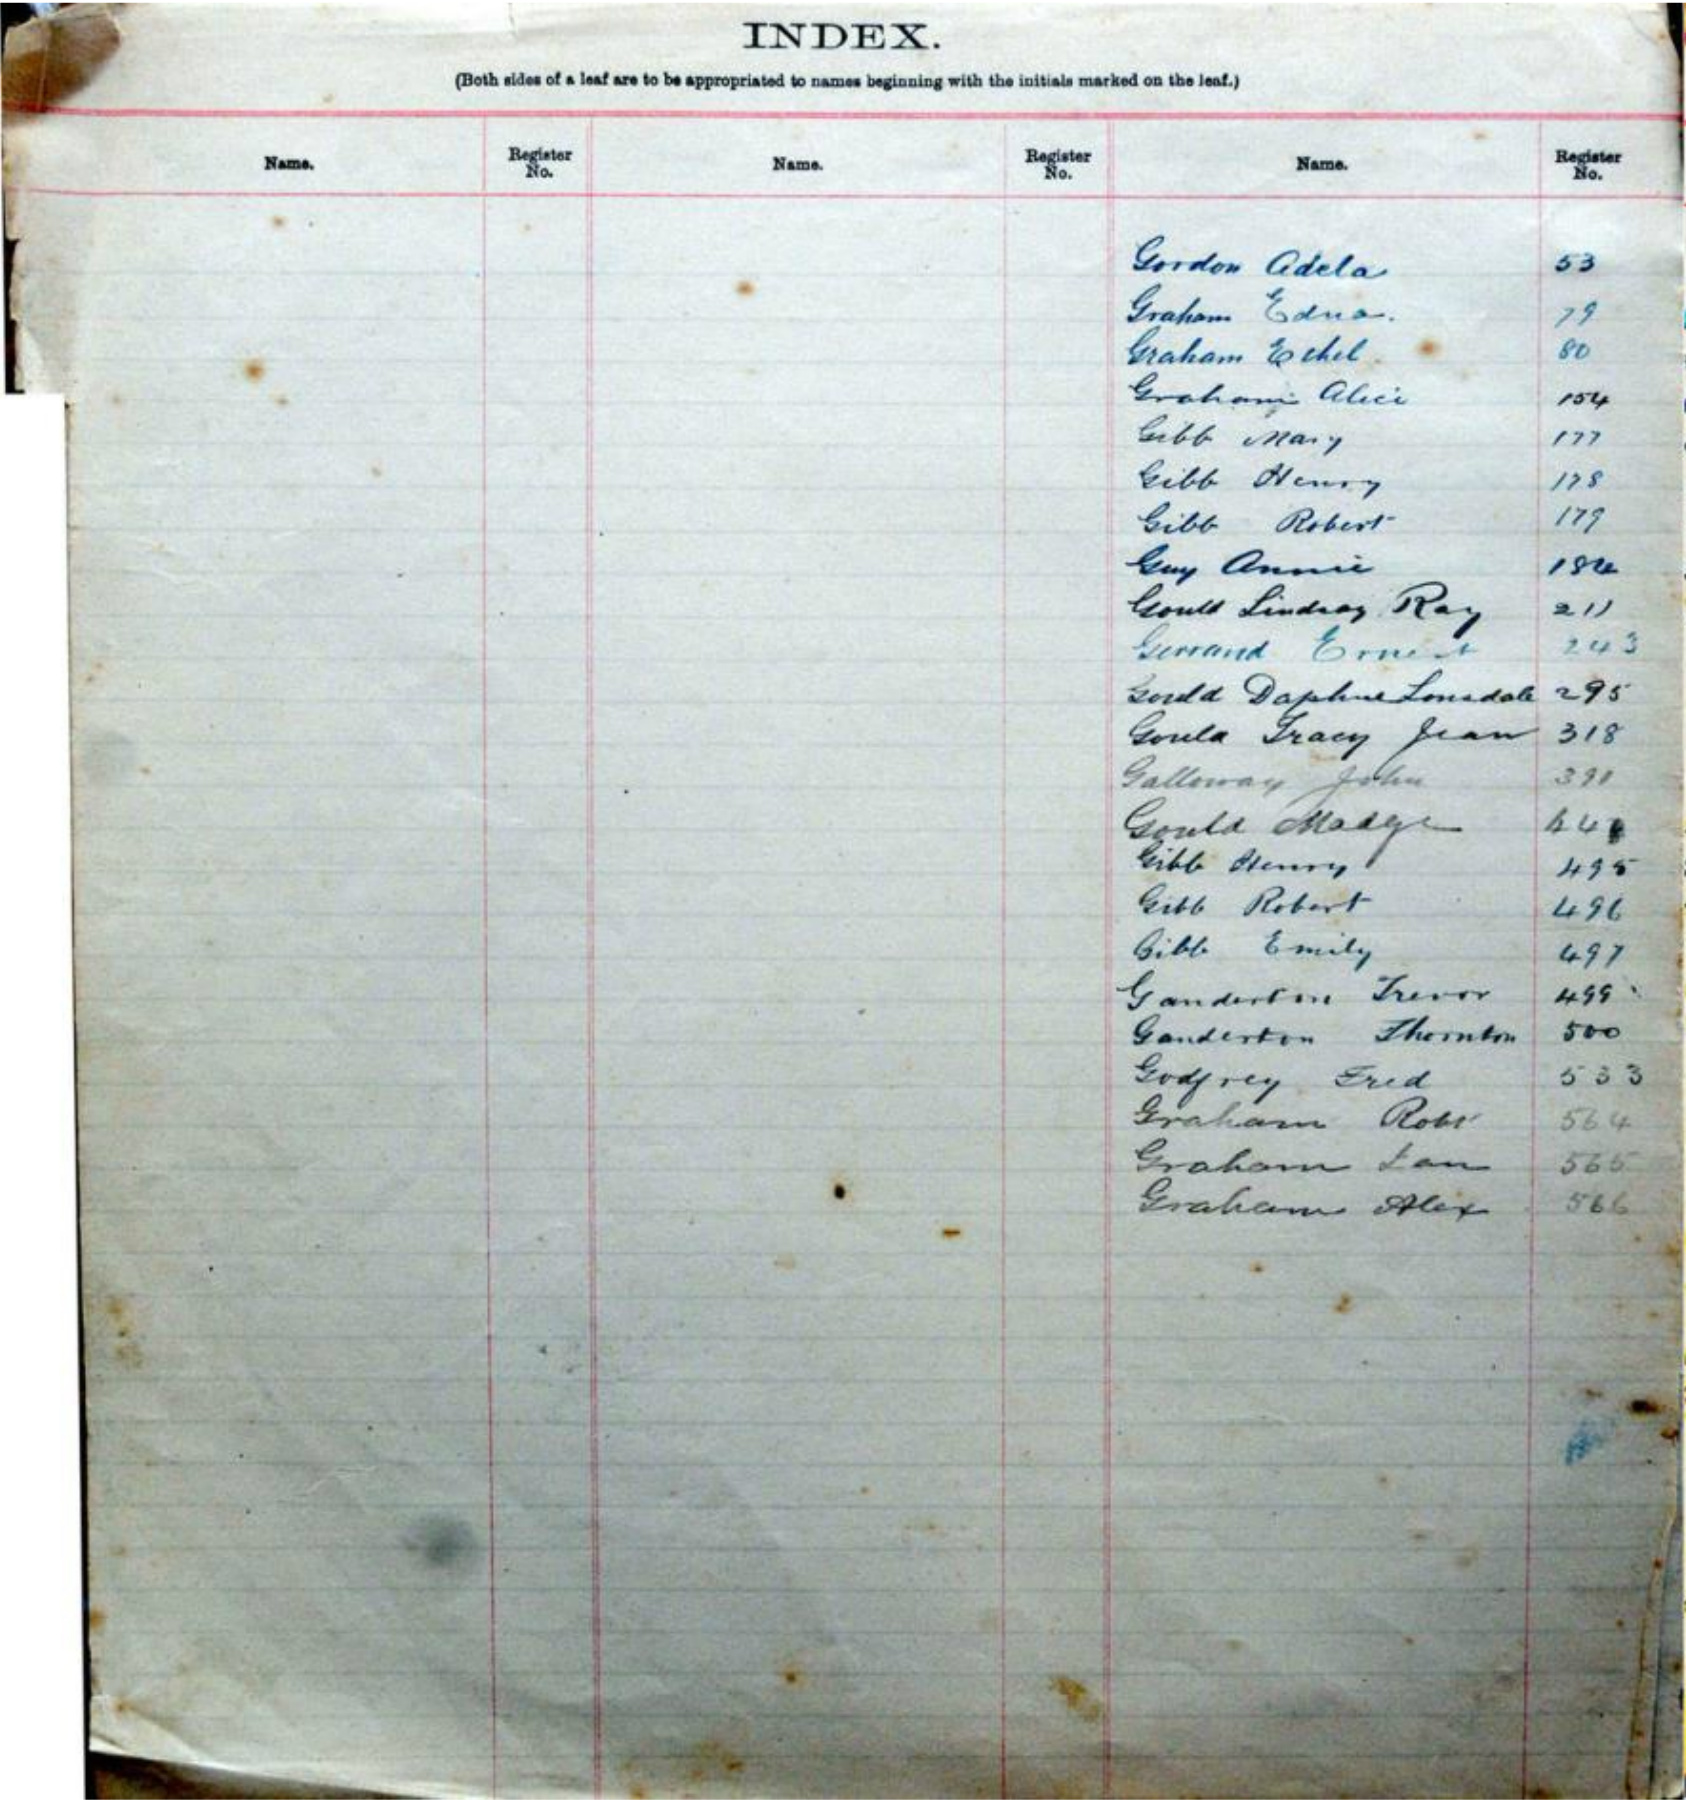 INDEX.
(Both sides of a leaf are to be appropriated to names beginning with the initials marked on the leaf.)
Name. Register No. Name. Register No. Name. Register No.
Gordon Adela 53
Graham Edna. 79
Graham Ethel 80
Graham Alice 154
Gibb Mary 177
Gibb Henry 178
Gibb Robert 179
Guy Annie
Gould Lindsay Ray 211
Gerrand Ernest 243
Gould Daphne Lonsdale 295
Gould Tracy Jean 318
Galloway John
Gould Madge
Gibb Henry 495
Gibb Robert 496
Gibb Emily 497
Ganderton Trevor 499
Ganderton Thornton 500
Godfrey Fred 533
Graham Robt 564
Graham Ian 565
Graham Alex 566